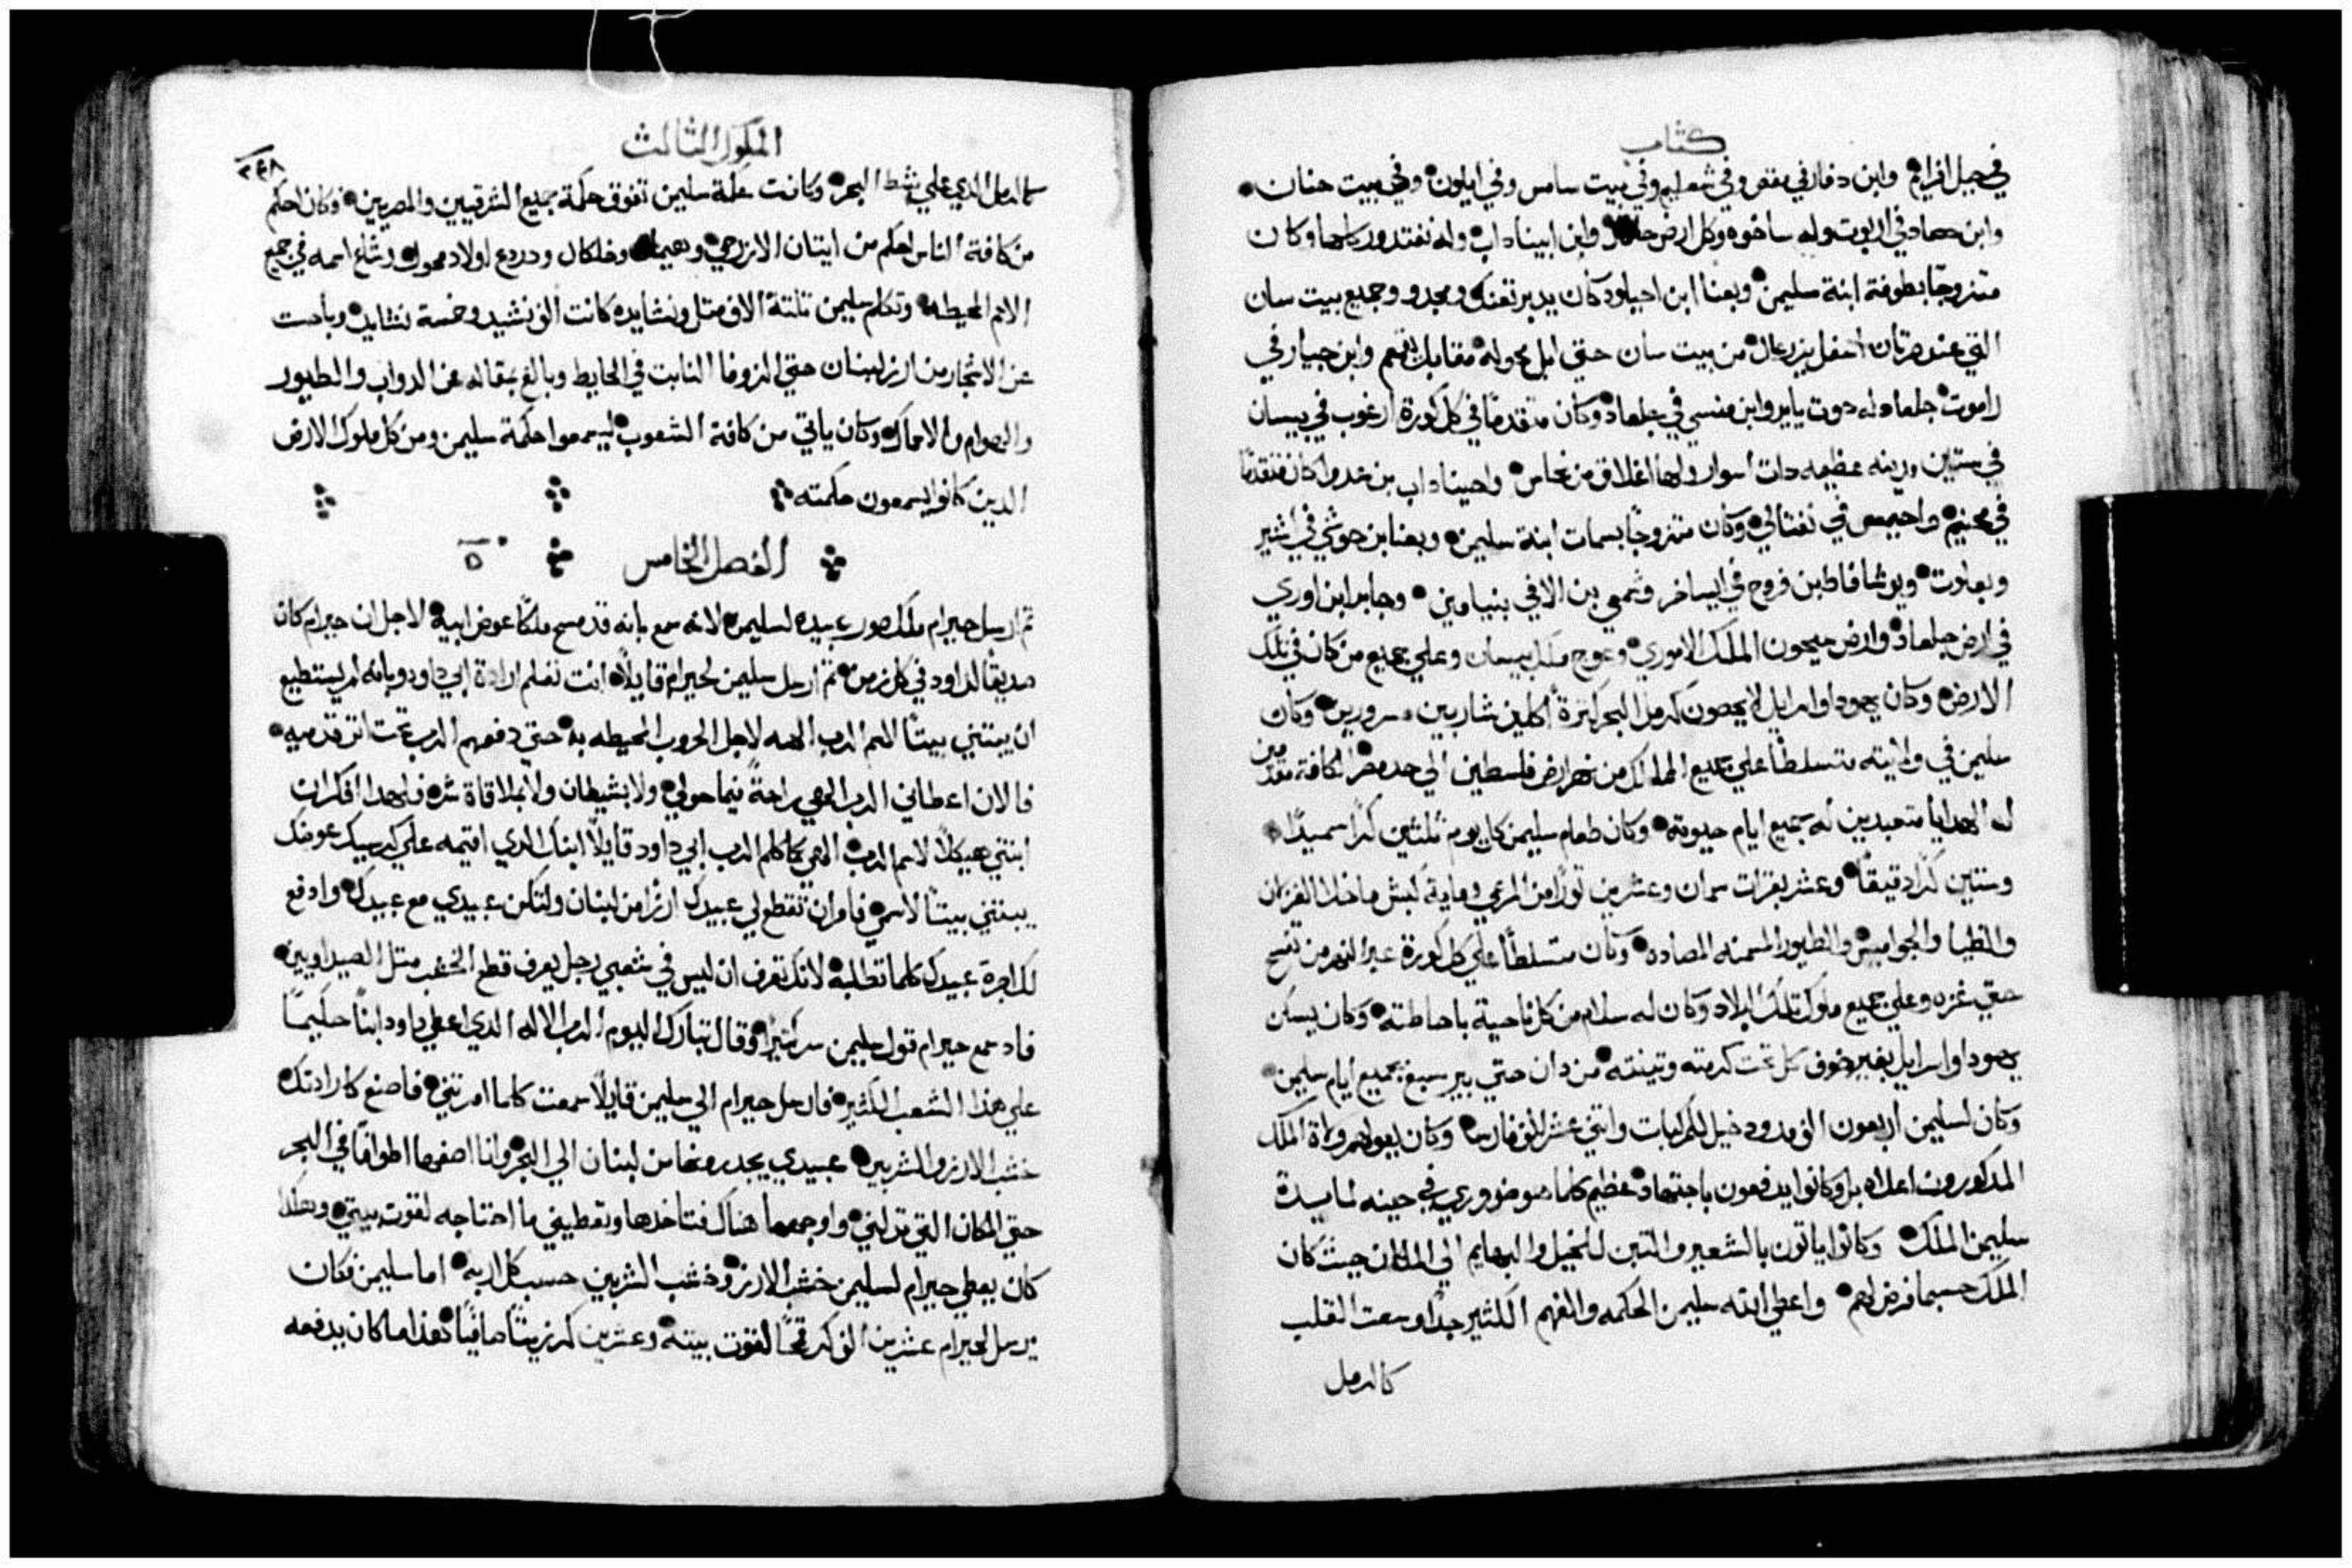 كتاب
في جبل افرايم وابن دقار في مقص وفي شعليم وفي بيت سامس وفي ايلون وفي بيت حنان
وابن حصاد في اربوت وله ساخوه وكل ارض وابن ابيناداب وله نفتدور كلها وكان
متزوجًا بطوفة ابنة سليمن وبعنا ابن احيلود كان يدبر تعنك ومجدو وجميع بيت سان
التي عند صرتان اسفل يزرعال من بيت سان حتي ابل محوله مقابل يقمعم وابن جبار في
راموت جلعاد له دوت يايرو ابن منسي في جلعاد وكان متقدمًا في كل كورة ارغوب في بيسان
في ستين مدينه عظيمه دات اسوار ولها اغلاق من نحاس واحيناداب بن عدوا كان متقدمًا
في محنيم واحيمعص في نفتالي وكان متزوجًا بسمات ابنة سليمن وبعنا بن حوشي في اشير
وبعلوت ويوشافاط بن فروح في ايساخر وشمعي بن الا في بنيامين وجابر ابن اوري
في ارض جلعاد وارض سيحون الملك الاموري وعوج ملك بيسان وعلي جميع من كان في تلك
الارض وكان يهودا واسرايل لا يحصون كرمل البحر كثرة أكلين شاربين مسرورين وكان
سليمن في ولايته متسلطًا علي جميع الممالك من نهر ارض فلسطين الي حد مصر الكافة مقدمين
له الهدايا متعبدين له جميع ايام حيوته وكان طعام سليمن كل يوم ثلثين كرًا سميدًا
وستين كرًا دقيقًا وعشر بقرات سمان وعشرين تورًا من المرعي وماية كبش ما خلا الغزلان
والظبا والجواميس والطيور المسمنه المصاده وكان متسلطًا علي كل كورة عبر النهر من تفسح
حتي غزه وعلي جميع ملوك تلك البلاد وكان له سلام من كل ناحية باحاطته وكان يسكن
يهودا واسرايل بغير خوف كل تحت كرمته وتينته من دان حتي بير سبع جميع ايام سليمن
وكان لسليمن أربعون الف مدود خيل للمركبات واتني عشر الف فارسا وكان يعولهم ولاة الملك
المذكورون اعلاه بل وكانوا يدفعون باجتهاد عظيم كلما هو ضروري في حينه لمايدة
سليمن الملك وكانوا ياتون بالشعير والتبن للخيل والبهايم الي المكان حيث كان
الملك حسبما فرض لهم واعطي الله سليمن الحكمه والفهم الكثير جدًا وسعت القلب
كالرمل
الملوك الثالث
٣٤٨
كالرمل الدي علي شط البحر وكانت حكمة سليمن تفوق حكمة جميع الشرقيين والمصريين وكان احكم
من كافة الناس احكم من ايتان الازرحي وهيمان وخلكال ودردع اولاد محول وشاع اسمه في جميع
الامم المحيطه وتكلم سليمن تلتة الاف متل ونشايده كانت الف نشيد وخمسة نشايد وباحث
عن الاشجار من ارز لبنان حتي الزوفا النابت في الحايط وبالغ بمقاله عن الدواب والطيور
والهوام والاسماك وكان ياتي من كافة الشعوب ليسمعوا حكمة سليمن ومن كل ملوك الارض
الدين كانوا يسمعون حكمته
الفصل الخامس ٥
تم ارسل حيرام ملك صور عبيده لسليمن لانه سمع بانه قد مسح ملكًا عوض ابيه لاجل ان حيرام كان
صديقًا لداود في كل زمن تم ارسل سليمن لحيرام قايلًا انت تعلم ارادة ابي داود وبانه لم يستطيع
ان يبتني بيتًا لاسم الرب الهه لاجل الحروب المحيطه به حتي دفعهم الرب تحت اتر قدميه
فالان اعطاني الرب الهي راحةً فيما حولي ولا شيطان ولا ملاقاة شره فلهدا افكر ان
ابتني هيكلًا لاسم الرب الهي كما كلم الرب ابي داود قايلًا ابنك الدي اقيمه علي كرسيك عوضك
يبتني بيتًا لاسمي فامر ان تقطع لي عبيدك ارزًا من لبنان ولتكن عبيدي مع عبيدك وادفع
لك اجرة عبيدك كلما تطلبه لانك تعرف ان ليس في شعبي رجل يعرف قطع الخشب متل الصيداويين
فاد سمع حيرام قول سليمن سر كثيرًا وقال تبارك اليوم الرب الاله الدي اعطي داود ابنًا حكيمًا
علي هذا الشعب الكثير فارسل حيرام الي سليمن قايلًا سمعت كلما امرتني فاصنع كارادتك
خشب الارز والشربين عبيدي يحدرونها من لبنان الي البحر وانا اصفها اطوافًا في البحر
حتي المكان التي ترلني واوجهها هناك فتاخدها وتعطيني ما احتاجه لقوت بيتي وهكدا
كان يعطي حيرام لسليمن خشب الارز وخشب الشربين حسب كل اربه اما سليمن فكان
يرسل لحيرام عشرين الف كر قمحًا لقوت بيته وعشرين كر زيتًا صافيًا هذا ما كان يدفعه